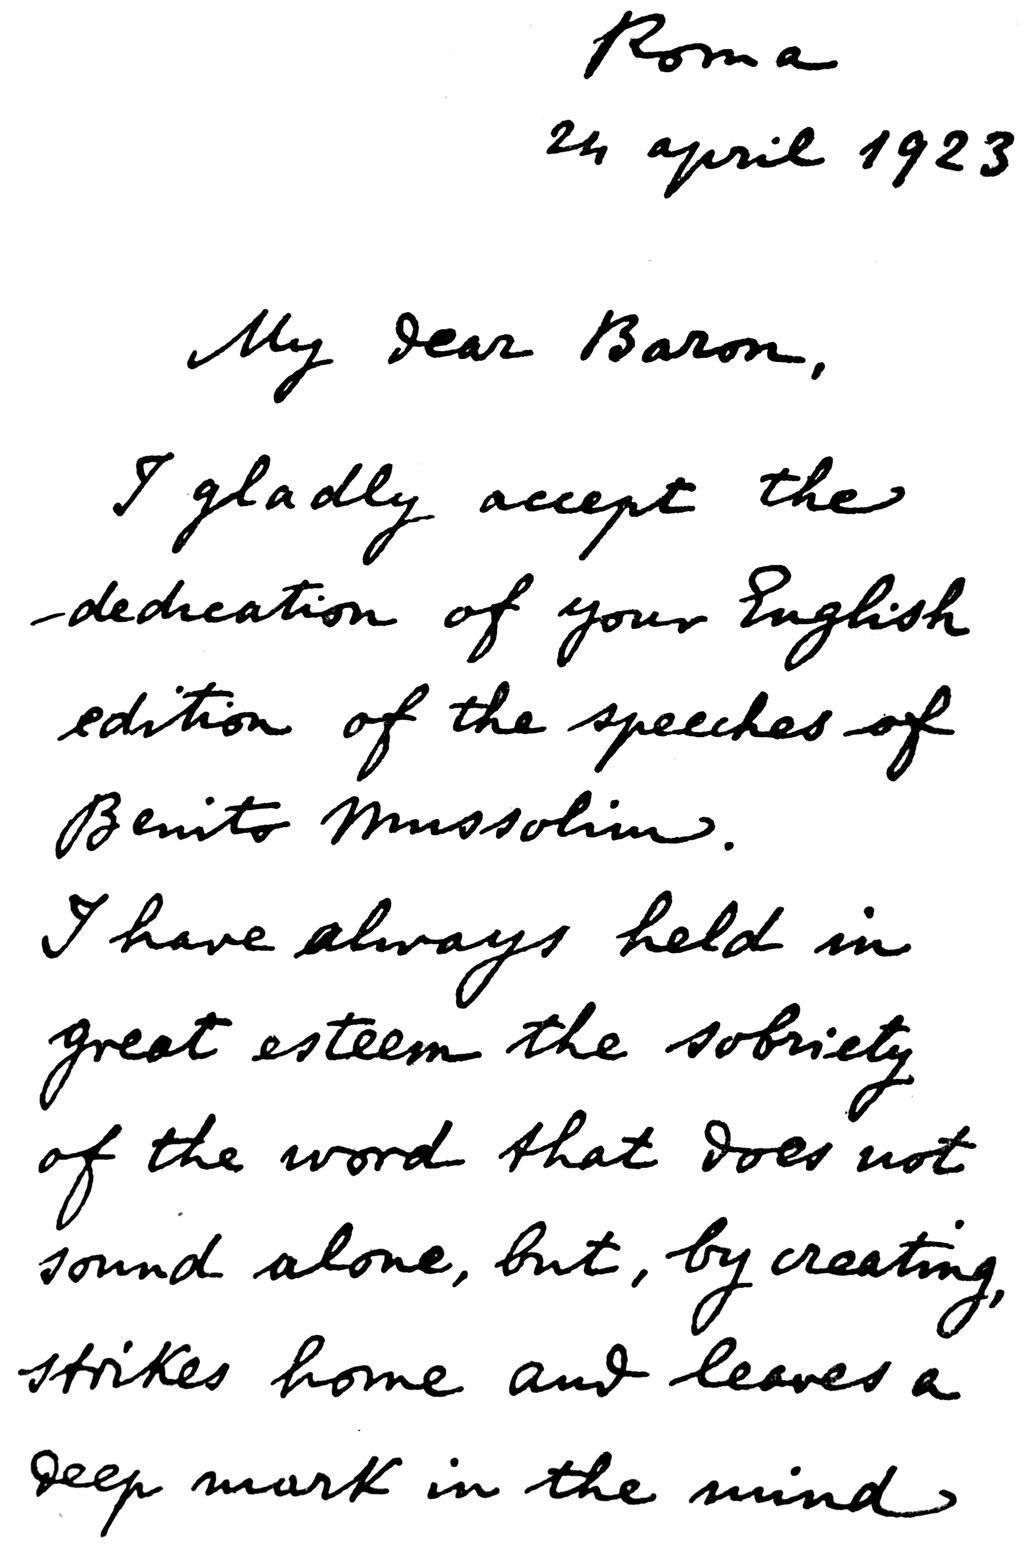 Roma
24 april 1923
My dear Baron,
I gladly accept the
dedication of your English
edition of the speeches of
Benito Mussolini.
I have always held in
great esteem the sobriety
of the word that does not
sound alone, but, by creating,
strikes home and leaves a
deep mark in the mind